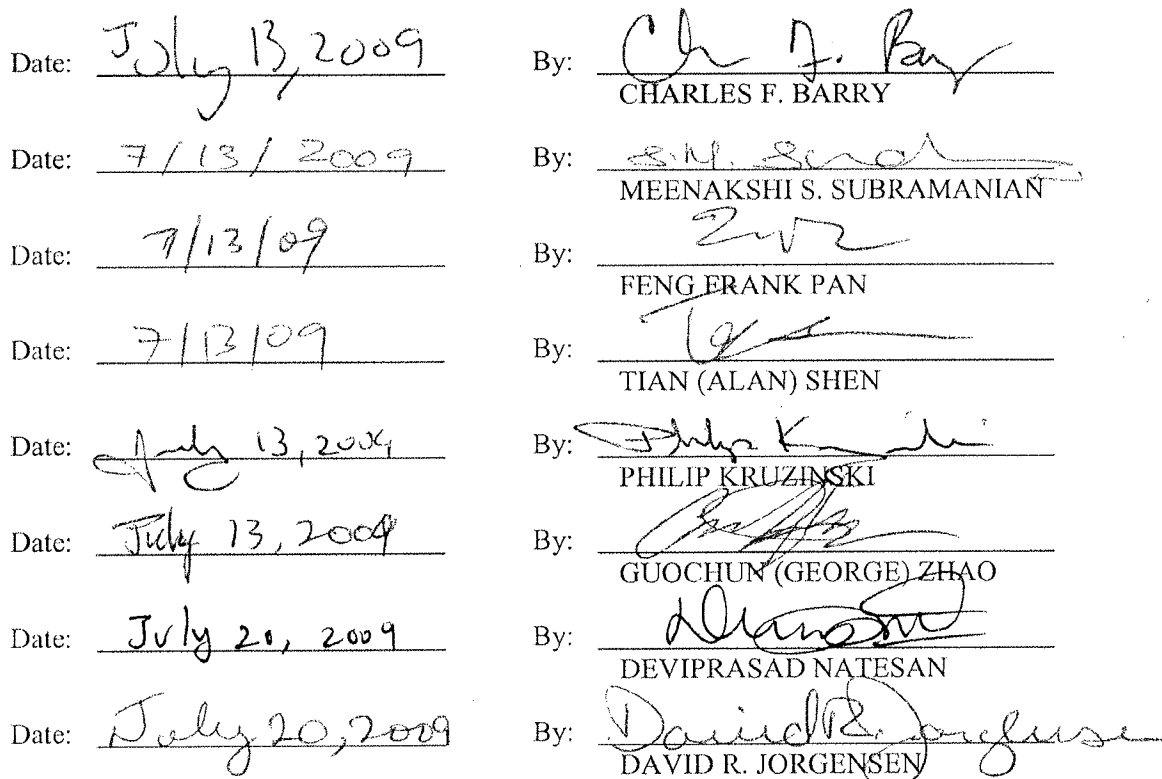 Date: July 13, 2009 By: Ch F. Barry
CHARLES F. BARRY
Date: 7/13/2009 By: S.M.
MEENAKSHI S. SUBRAMANIAN
Date: 7/13/09 By:
FENG FRANK PAN
Date: 7/13/09 By:
TIAN (ALAN) SHEN
Date: July 13, 2009 By: Philip Kruzinski
PHILIP KRUZINSKI
Date: July 13, 2009 By:
GUOCHUN (GEORGE) ZHAO
Date: July 20, 2009 By:
DEVIPRASAD NATESAN
Date: July 20, 2009 By: David R. Jorgensen
DAVID R. JORGENSEN